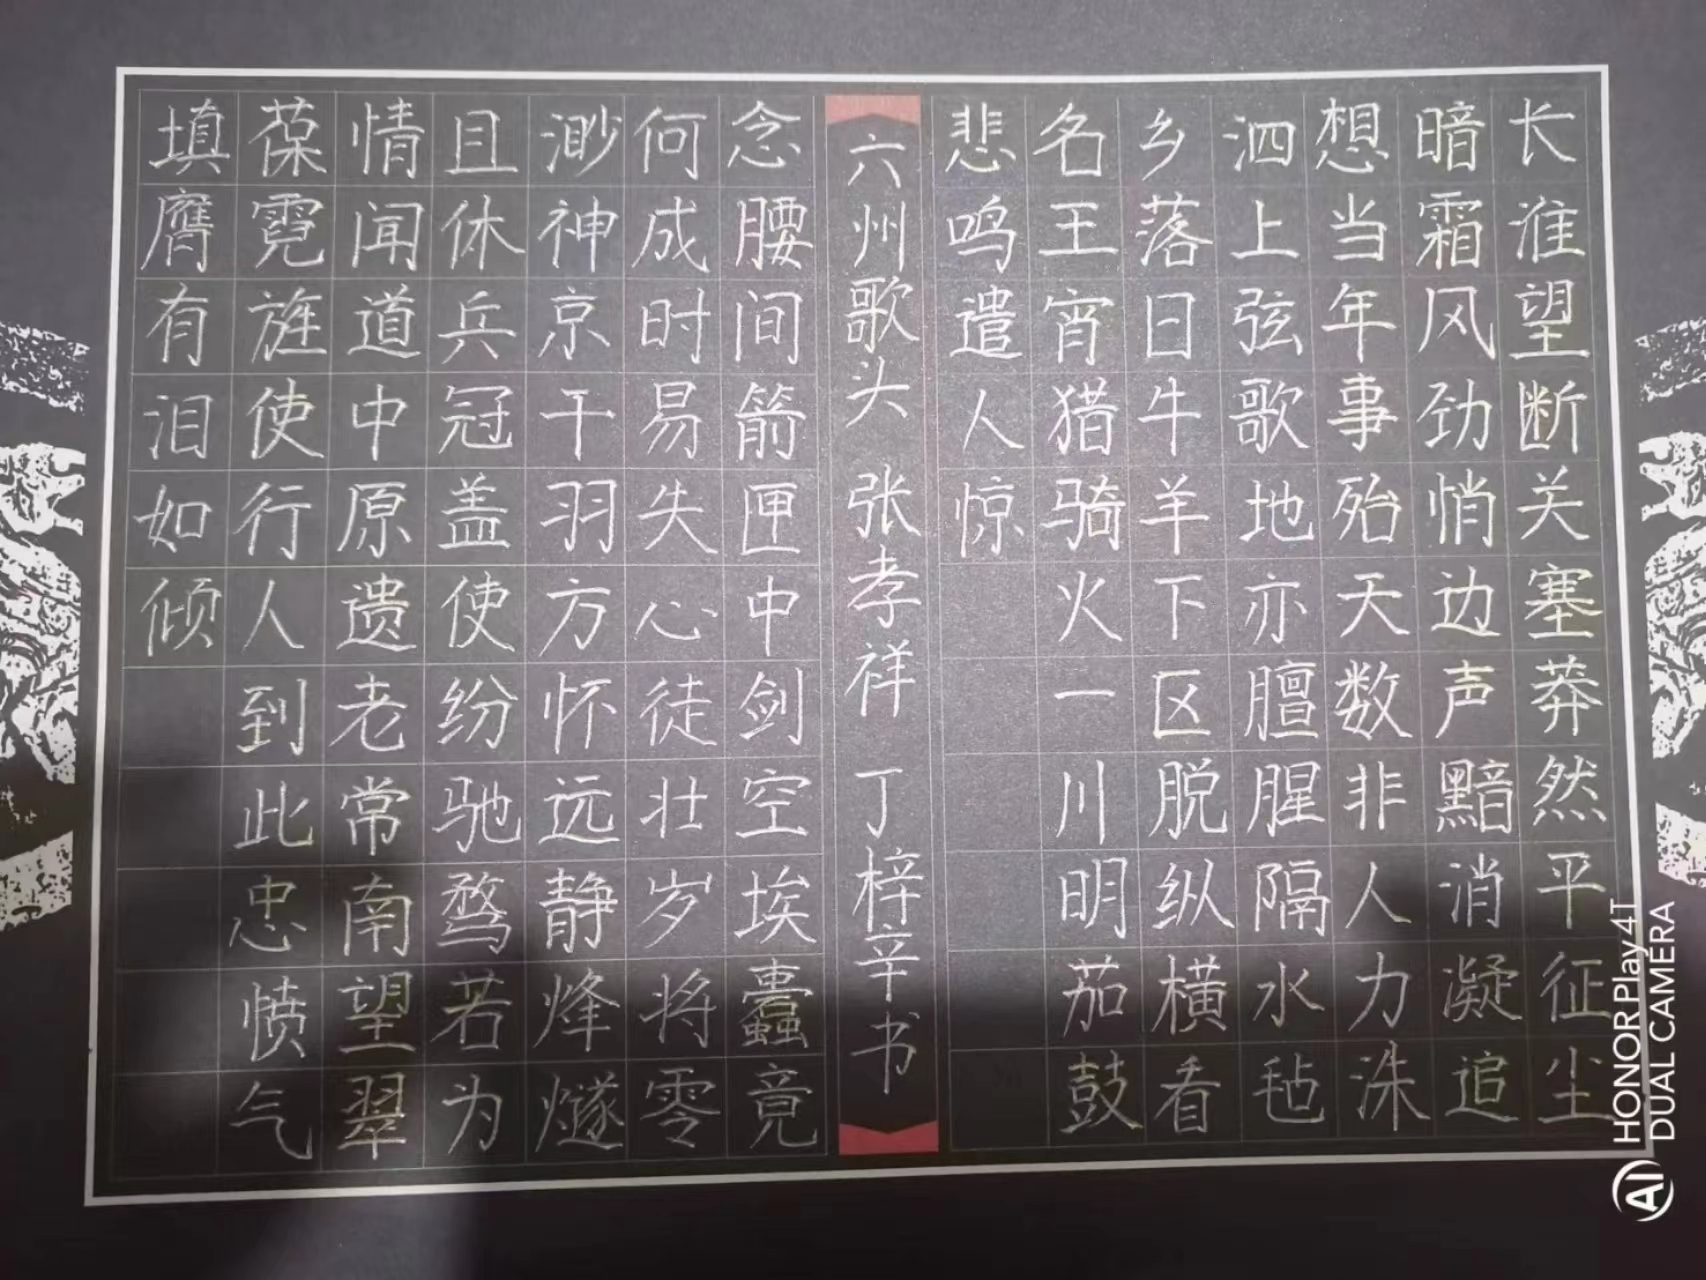 长淮望断关塞莽然平征尘
暗霜风劲悄边声黯消凝追
想当年事殆天数非人力洙
泗上弦歌地亦膻腥隔水毡
乡落日牛羊下区脱纵横看
名王宵猎骑火一川明茄鼓
悲鸣遣人惊
六州歌头 张孝祥 丁梓辛书
念腰间箭匣中剑空埃蠹竟
何成时易失心徒壮岁将零
渺神京干羽方怀远静烽燧
且休兵冠盖使纷驰骛若为
情闻道中原遗老常南望翠
葆霓旌使行人到此忠愤气
填膺有泪如倾
HONOR Play4T
DUAL CAMERA
AI